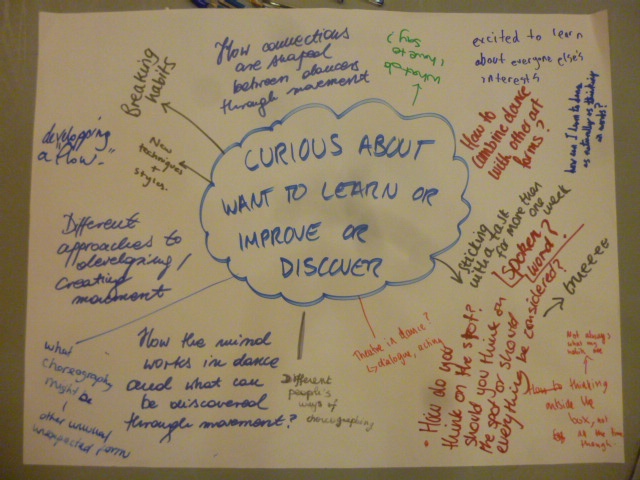 CURIOUS ABOUT
WANT TO LEARN OR
IMPROVE OR
DISCOVER
How connections
are shaped
between dancers
through movement
what do
I have to
say?
excited to learn
about everyone else's
interests
how can I learn to dance
as actually as thinking
in words?
How to
combine dance
with other art
forms?
sticking
with a task
for more than
one week
Spoken
word?
trueeee
• How do you
think on the spot?
should you think on
the spot or should
everything be considered?
Not always
what my
habits are
How to thinking
outside the
box, not
all the time
though
Theatre in dance?
↳ dialogue, acting
Different
people's
ways of
choreographing
How the mind
works in dance
and what can
be discovered
through movement?
what
choreography
might be
other unusual
unexpected form
Different
approaches to
developing/
creating
movement
developing
a "flow."
New
techniques
+
styles.
Breaking
habits